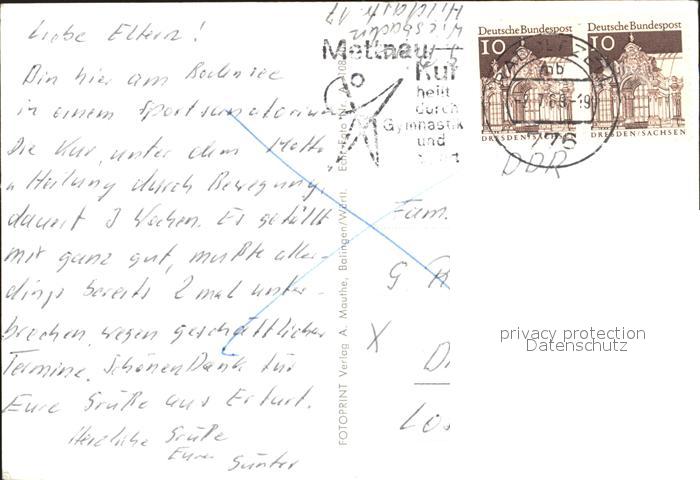 Liebe Eltern!
Bin hier am Bodensee
in einem Sportsanatorium
Die Kur, unter dem Motto
"Heilung durch Bewegung,
dauert 3 Wochen. Es gefällt
mir ganz gut, mußte aller-
dings bereits 2 mal unter-
brochen wegen geschäftlicher
Termine. Schönen Dank für
Eure Grüße aus Erfurt.
Herzliche Grüße
Euer Günter
FOTOPRINT Verlag A. Mauthe, Balingen/Württ.
Wiesbaden
Mettnau
Kur
heilt
durch
Gymnastik
und
Deutsche Bundespost
10
DRESDEN/SACHSEN
Deutsche Bundespost
10
DRESDEN/SACHSEN
DDR
Fam.
G
X
privacy protection
Datenschutz